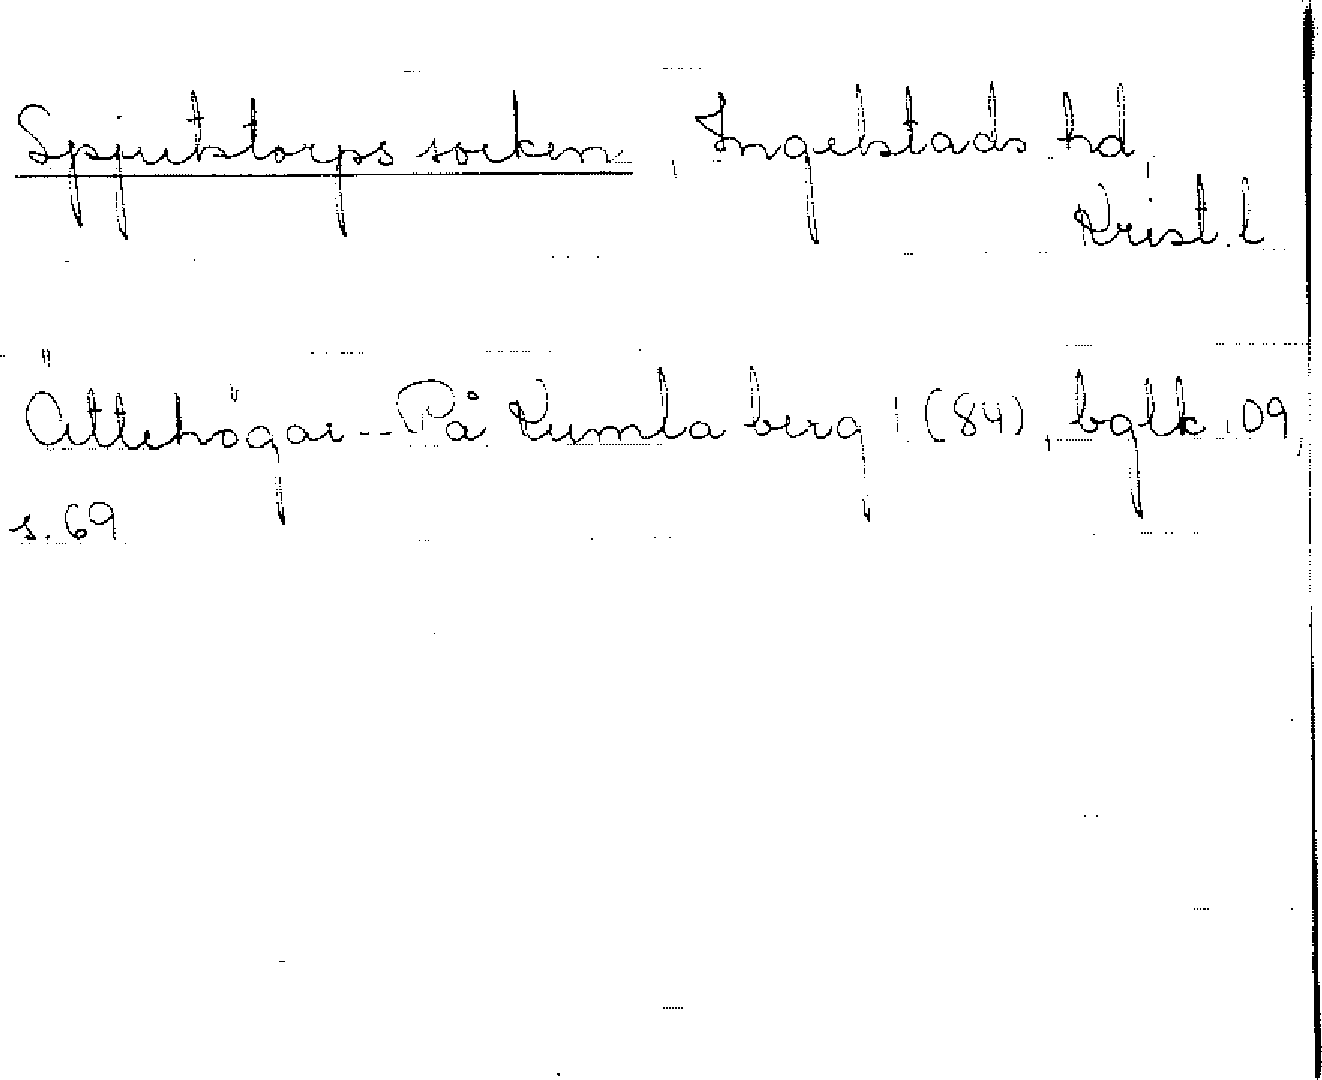 Spjutstorps socken, Ingelstads hd,
Krist. l
Ättehögar -- På Kumla berg (84), bglk 09,
s. 69